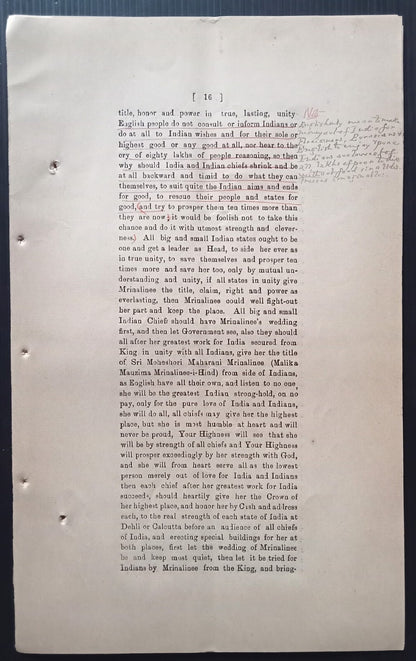 [ 16 ]
title, honor and power in true, lasting, unity
English people do not consult or inform Indians or
do at all to Indian wishes and for their sole or
highest good or any good at all, nor hear to the
cry of eighty lakhs of people reasoning, so then
why should India and Indian chiefs shriek and be
at all backward and timid to do what they can
themselves, to suit quite the Indian aims and ends
for good, to rescue their people and states for
good, and try to prosper them ten times more than
they are now; it would be foolish not to take this
chance and do it with utmost strength and clever-
ness.) All big and small Indian states ought to be
one and get a leader as Head, to side her ever as
in true unity, to save themselves and prosper ten
times more and save her too, only by mutual un-
derstanding and unity, if all states in unity give
Mrinalinee the title, claim, right and power as
everlasting, then Mrinalinee could well fight-out
her part and keep the place. All big and small
Indian Chiefs should have Mrinalinee's wedding
first, and then let Government see, also they should
all after her greatest work for India secured from
King in unity with all Indians, give her the title
of Sri Moheshori Maharani Mrinalinee (Malika
Mauzima Mrinalinee-i-Hind) from side of Indians,
as English have all their own, and listen to no one
she will be the greatest Indian strong-hold, on no
pay, only for the pure love of India and Indians,
she will do all, all chiefs may give her the highest
place, but she is most humble at heart and will
never be proud, Your Highness will see that she
will be by strength of all chiefs and Your Highness
will prosper exceedingly by her strength with God,
and she will from heart serve all as the lowest
person merely out of love for India and Indians
then each chief after her greatest work for India
succeeds, should heartily give her the Crown of
her highest place, and honor her by Cash and address
each, to the real strength of each state of India at
Dehli or Calcutta before an audience of all chiefs
of India, and erecting special buildings for her at
both places, first let the wedding of Mrinalinee
be and keep most quiet, then let it be tried for
Indians by Mrinalinee from the King, and bring-